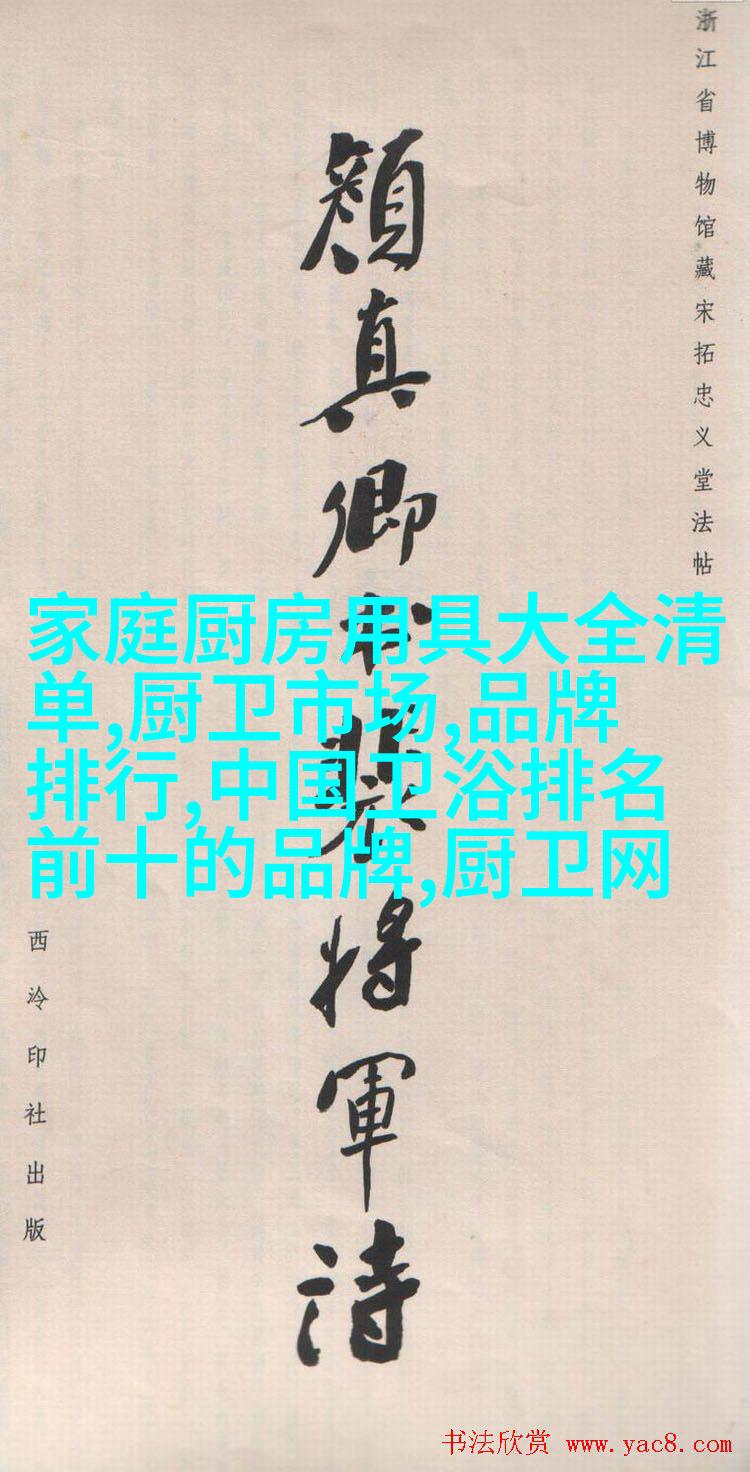 浙江省博物馆藏宋拓忠义堂法帖
颜真卿书裴将軍诗
西泠印社出版
家庭厨房用具大全清
单,厨卫市场,品牌
排行,中国卫浴排名
前十的品牌,厨卫网
书法欣赏 www.yac8.com